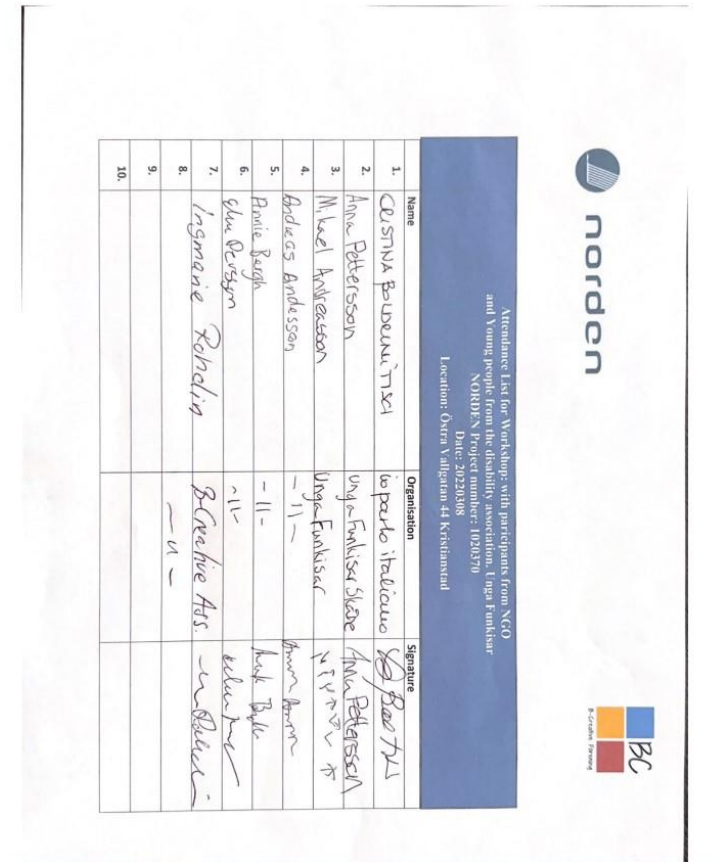 norden
BC
B-Creative Pärsoning
Attendance List for Workshop: with paricipants from NGO
and Young people from the disability association, Unga Funkisar
NORDEN Project number: 1020370
Date: 20220308
Location: Östra Vallgatan 44 Kristianstad
Name Organisation Signature
1. CRISTINA io parlo italiano
2. Anna Pettersson Unga Funkisar Skåne Anna Pettersson
3. Mikael Andreasson Unga Funkisar
4. Andreas Andesson - 11 -
5. Annie Bergh - 11 -
6. Persson - 11 -
7. Ingmarie Rohdin B-Creative Ass.
8. - 11 -
9.
10.